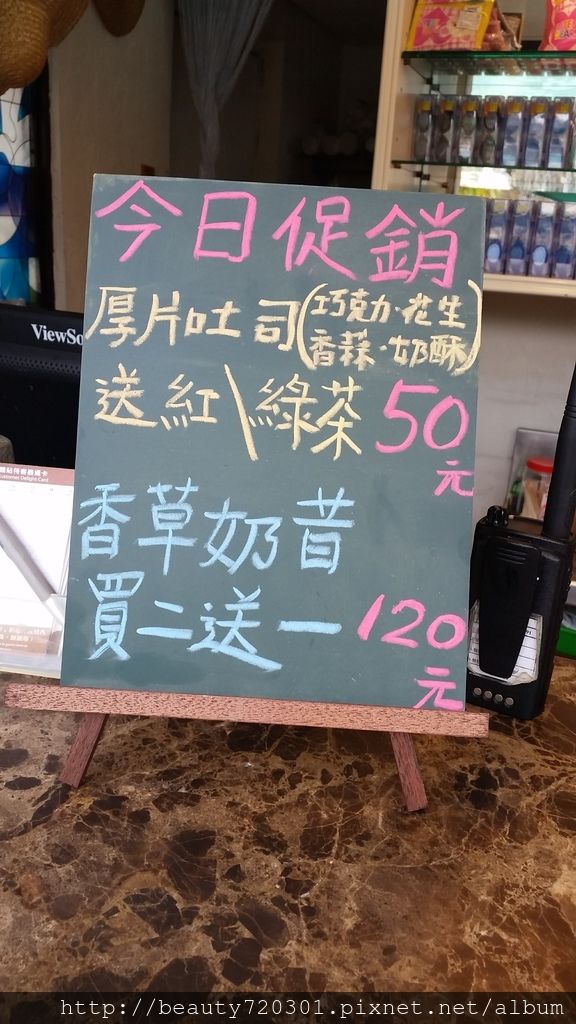 今日促銷
厚片吐司(巧克力·花生
香蒜·奶酥)
送紅\綠茶 50
元
香草奶昔
買二送一 120
元
ViewSo
Customer Delight Card
http://beauty720301.pixnet.net/album